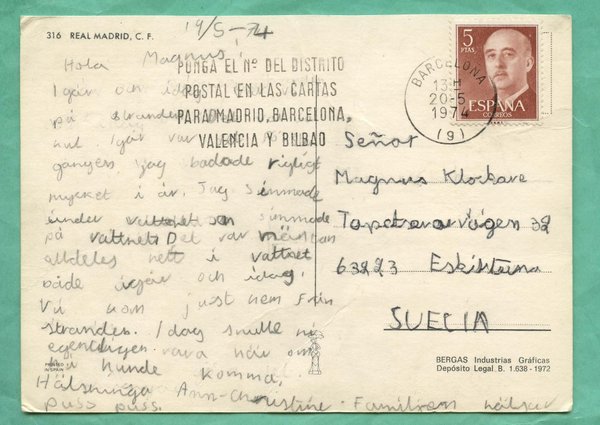 316 REAL MADRID, C. F.
19/5-74
Hola Magnus!
Igår och idag
på stranden.
kul. Igår var
gången jag badade riktigt
mycket i år. Jag simmade
under vattnet simmade
på vattnet. Det var nästan
alldeles nett i vattnet
både igår och idag.
Vi kom just hem från
stranden. Idag skulle ni
egentligen vara här om
ni kunde komma.
Hälsninga Ann-Christine. Familjen hälsar
puss puss.
PRINTED IN SPAIN
PONGA EL Nº DEL DISTRITO
POSTAL EN LAS CARTAS
PARA MADRID, BARCELONA,
VALENCIA Y BILBAO
BARCELONA
20-5
1974
(9)
5
PTAS
ESPAÑA
CORREOS
Señor
Magnus Klockare
Tapetserarvägen 32
63223 Eskilstuna
SUECIA
BERGAS Industrias Gráficas
Depósito Legal B. 1.638 - 1972